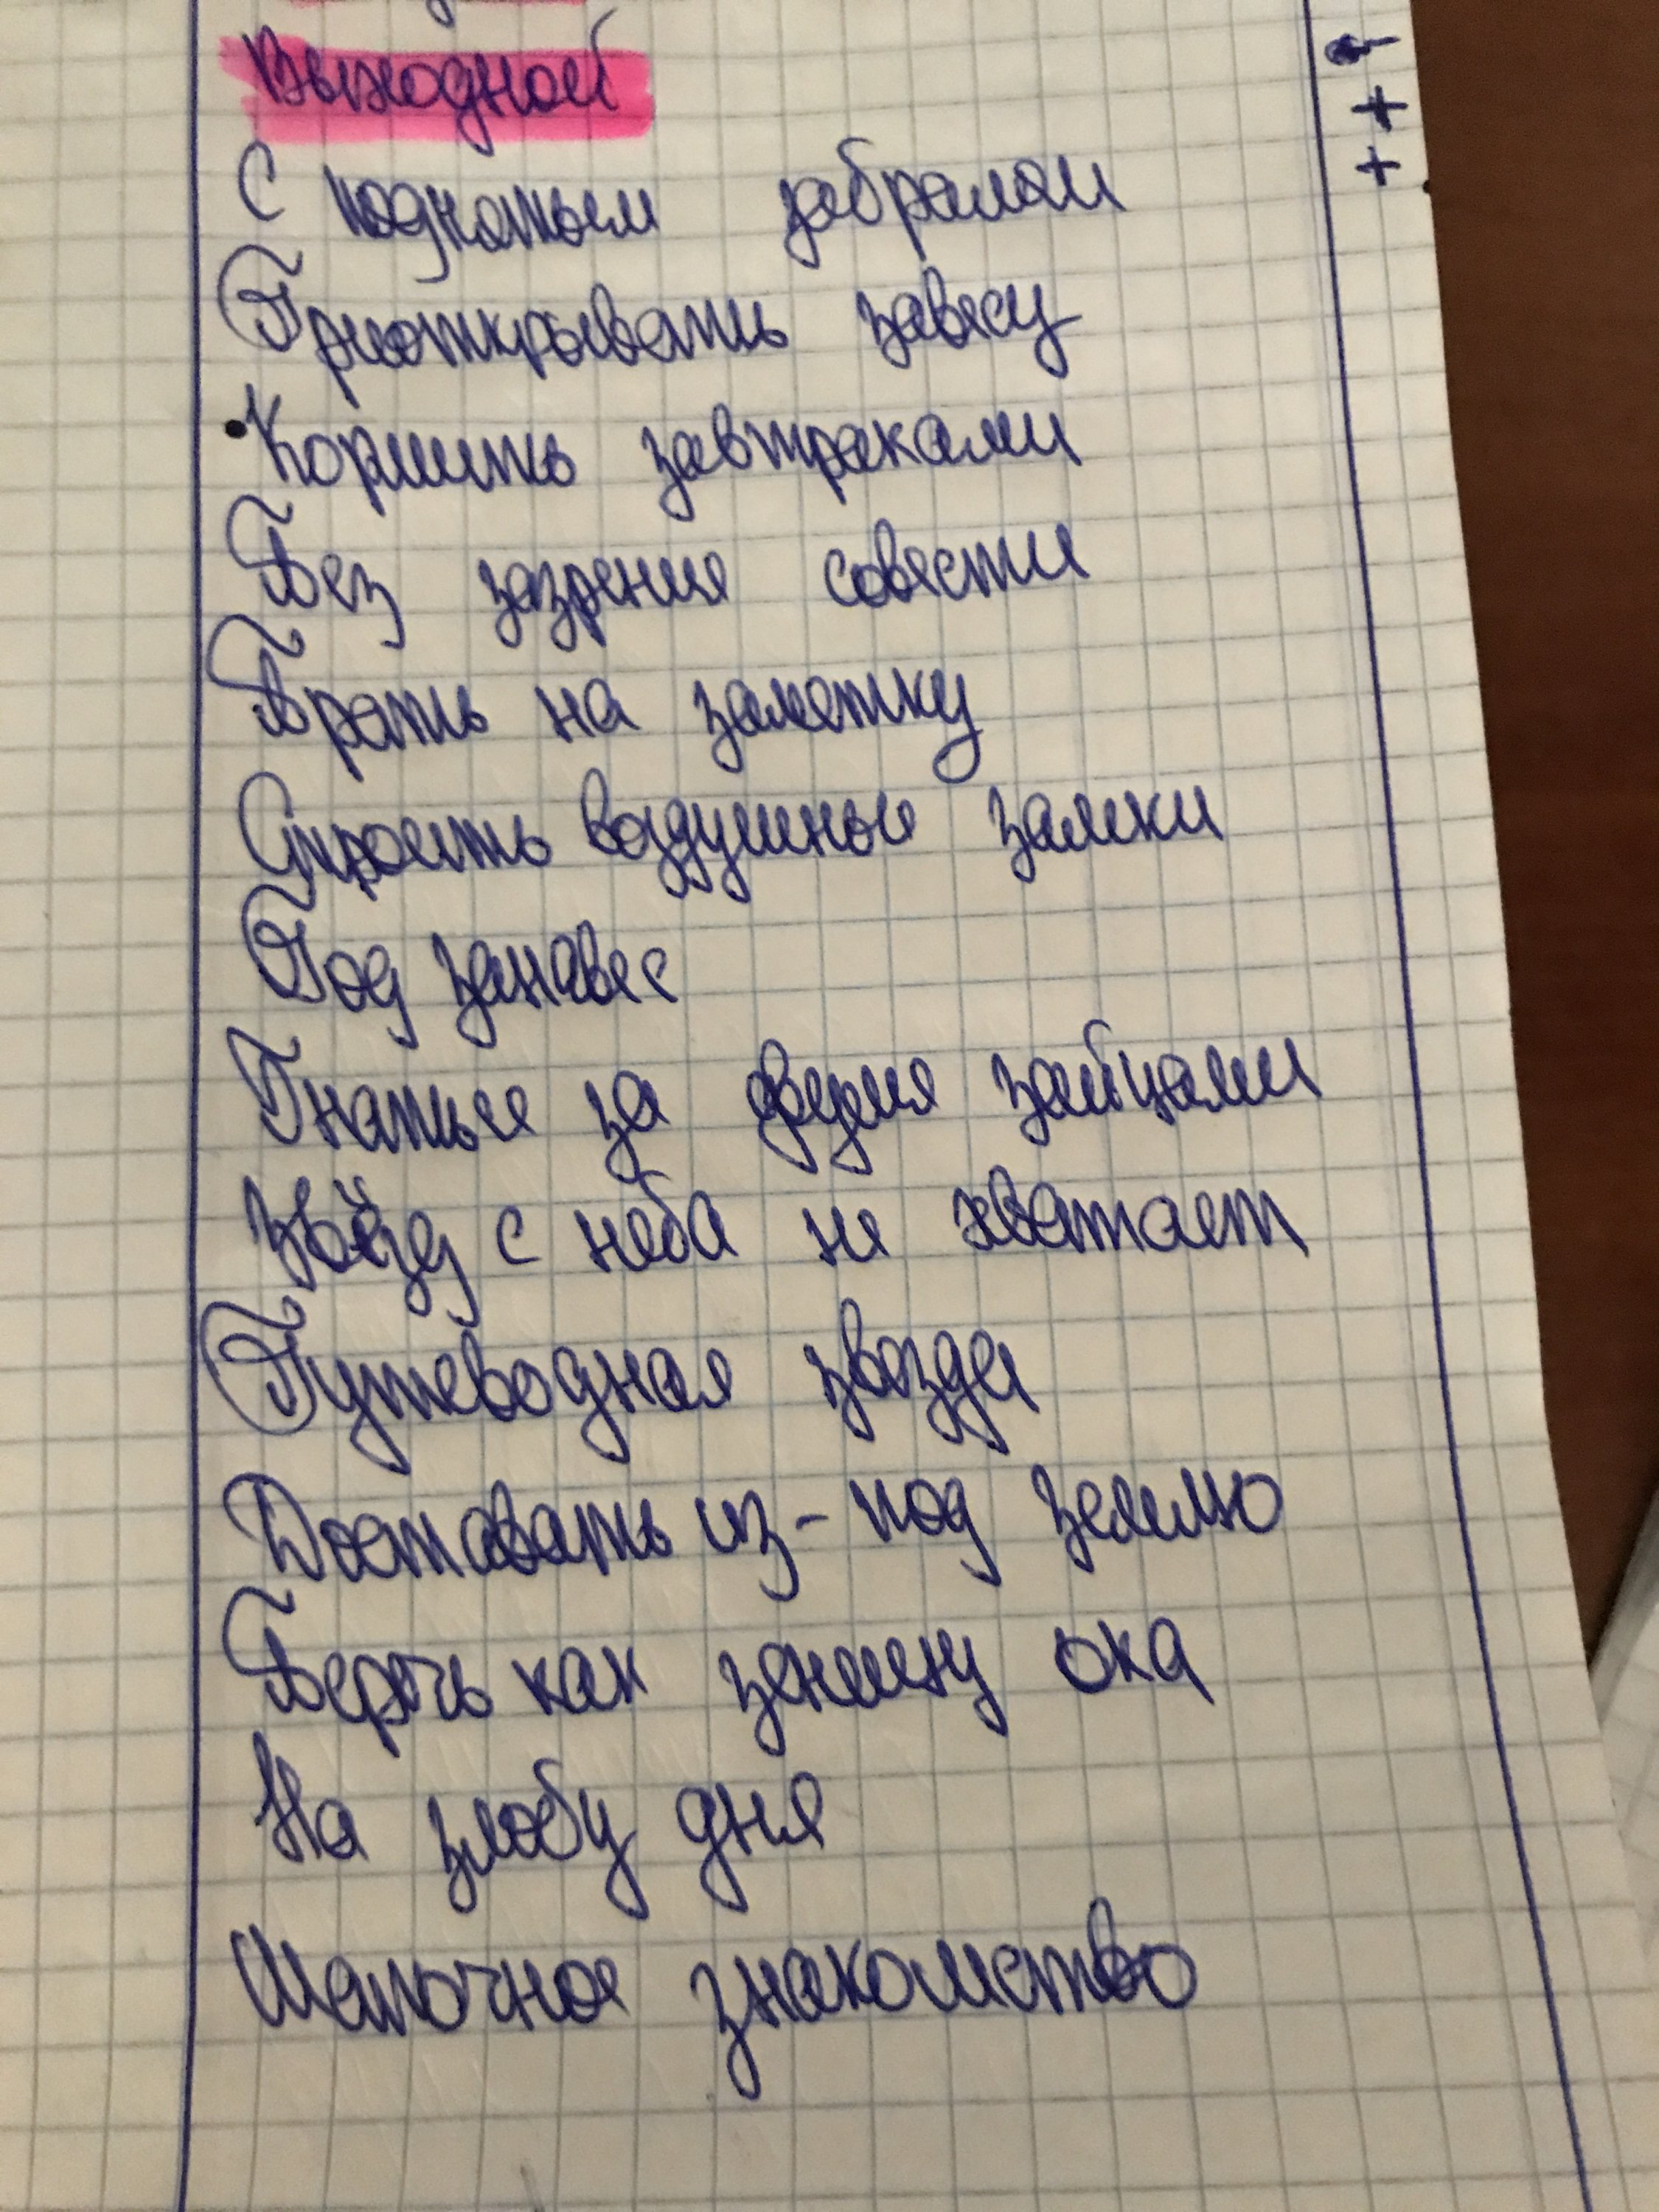 Выходной
С поднятым забралом
Приоткрывать завесу
Кормить завтраками
Без зазрения совести
Брать на заметку
Строить воздушные замки
Под занавес
Гнаться за двумя зайцами
Звёзд с неба не хватает
Путеводная звезда
Доставать из-под землю
Беречь как зеницу ока
На злобу дня
Шапочное знакомство
+
+